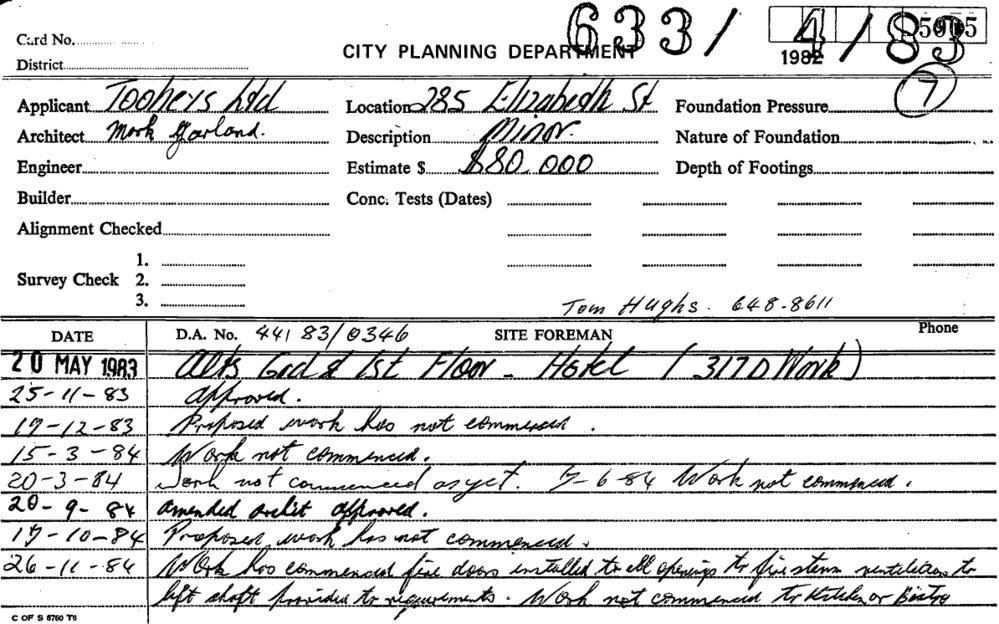 633/ 4/83
5905
Card No.
CITY PLANNING DEPARTMENT
1982
District
7
Applicant Tooheys Ltd Location 285 Elizabeth St Foundation Pressure
Architect Mark Garland. Description Minor. Nature of Foundation
Engineer Estimate $ $80,000 Depth of Footings
Builder Conc. Tests (Dates)
Alignment Checked
1.
Survey Check 2.
3.
Tom Hughs. 648-8611
DATE D.A. No. 44 83/0346 SITE FOREMAN Phone
20 MAY 1983 Alts Grd & 1st Floor - Hotel (317D Work)
25-11-83 Approved.
19-12-83 Proposed work has not commenced.
15-3-84 Work not commenced.
20-3-84 Work not commenced as yet. 7-6-84 Work not commenced.
20-9-84 Amended archit approved.
17-10-84 Proposed work has not commenced.
26-11-84 Work has commenced fire doors installed to all openings to fire ventilation to
lift shaft provided to requirements. Work not commenced to Kitchen or Bistro
C OF S 5760 T5